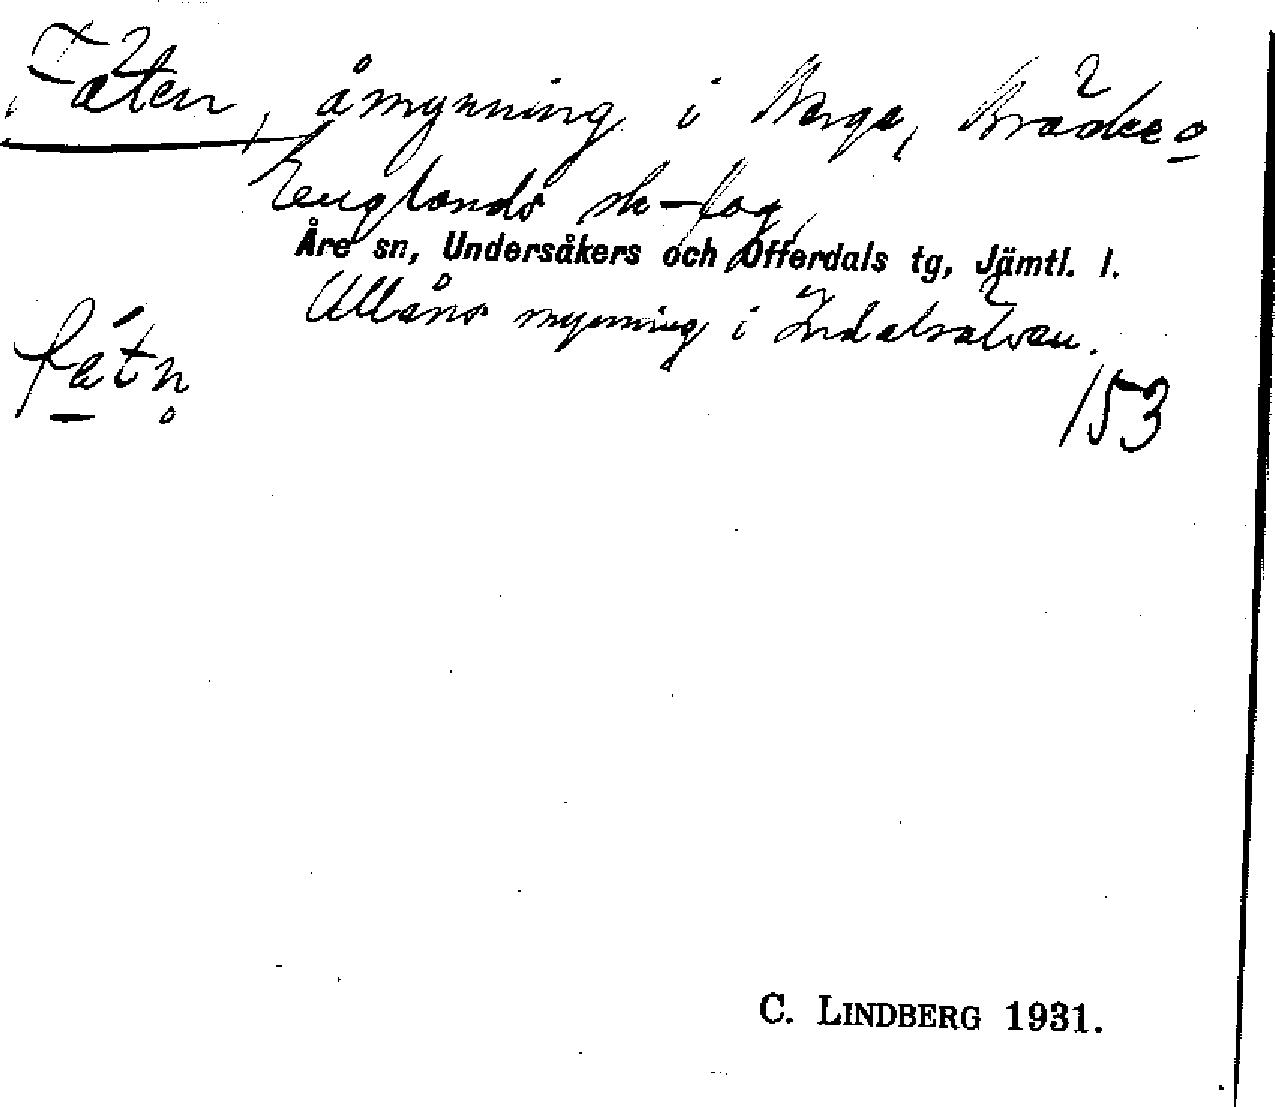 Fäten, åmynning i Berge, Bräcke o
Englands sk-lag,
Åre sn, Undersåkers och Offerdals tg, Jämtl. l.
Ullåns mynning i Indalsälven.
fátn̥
153
C. LINDBERG 1931.